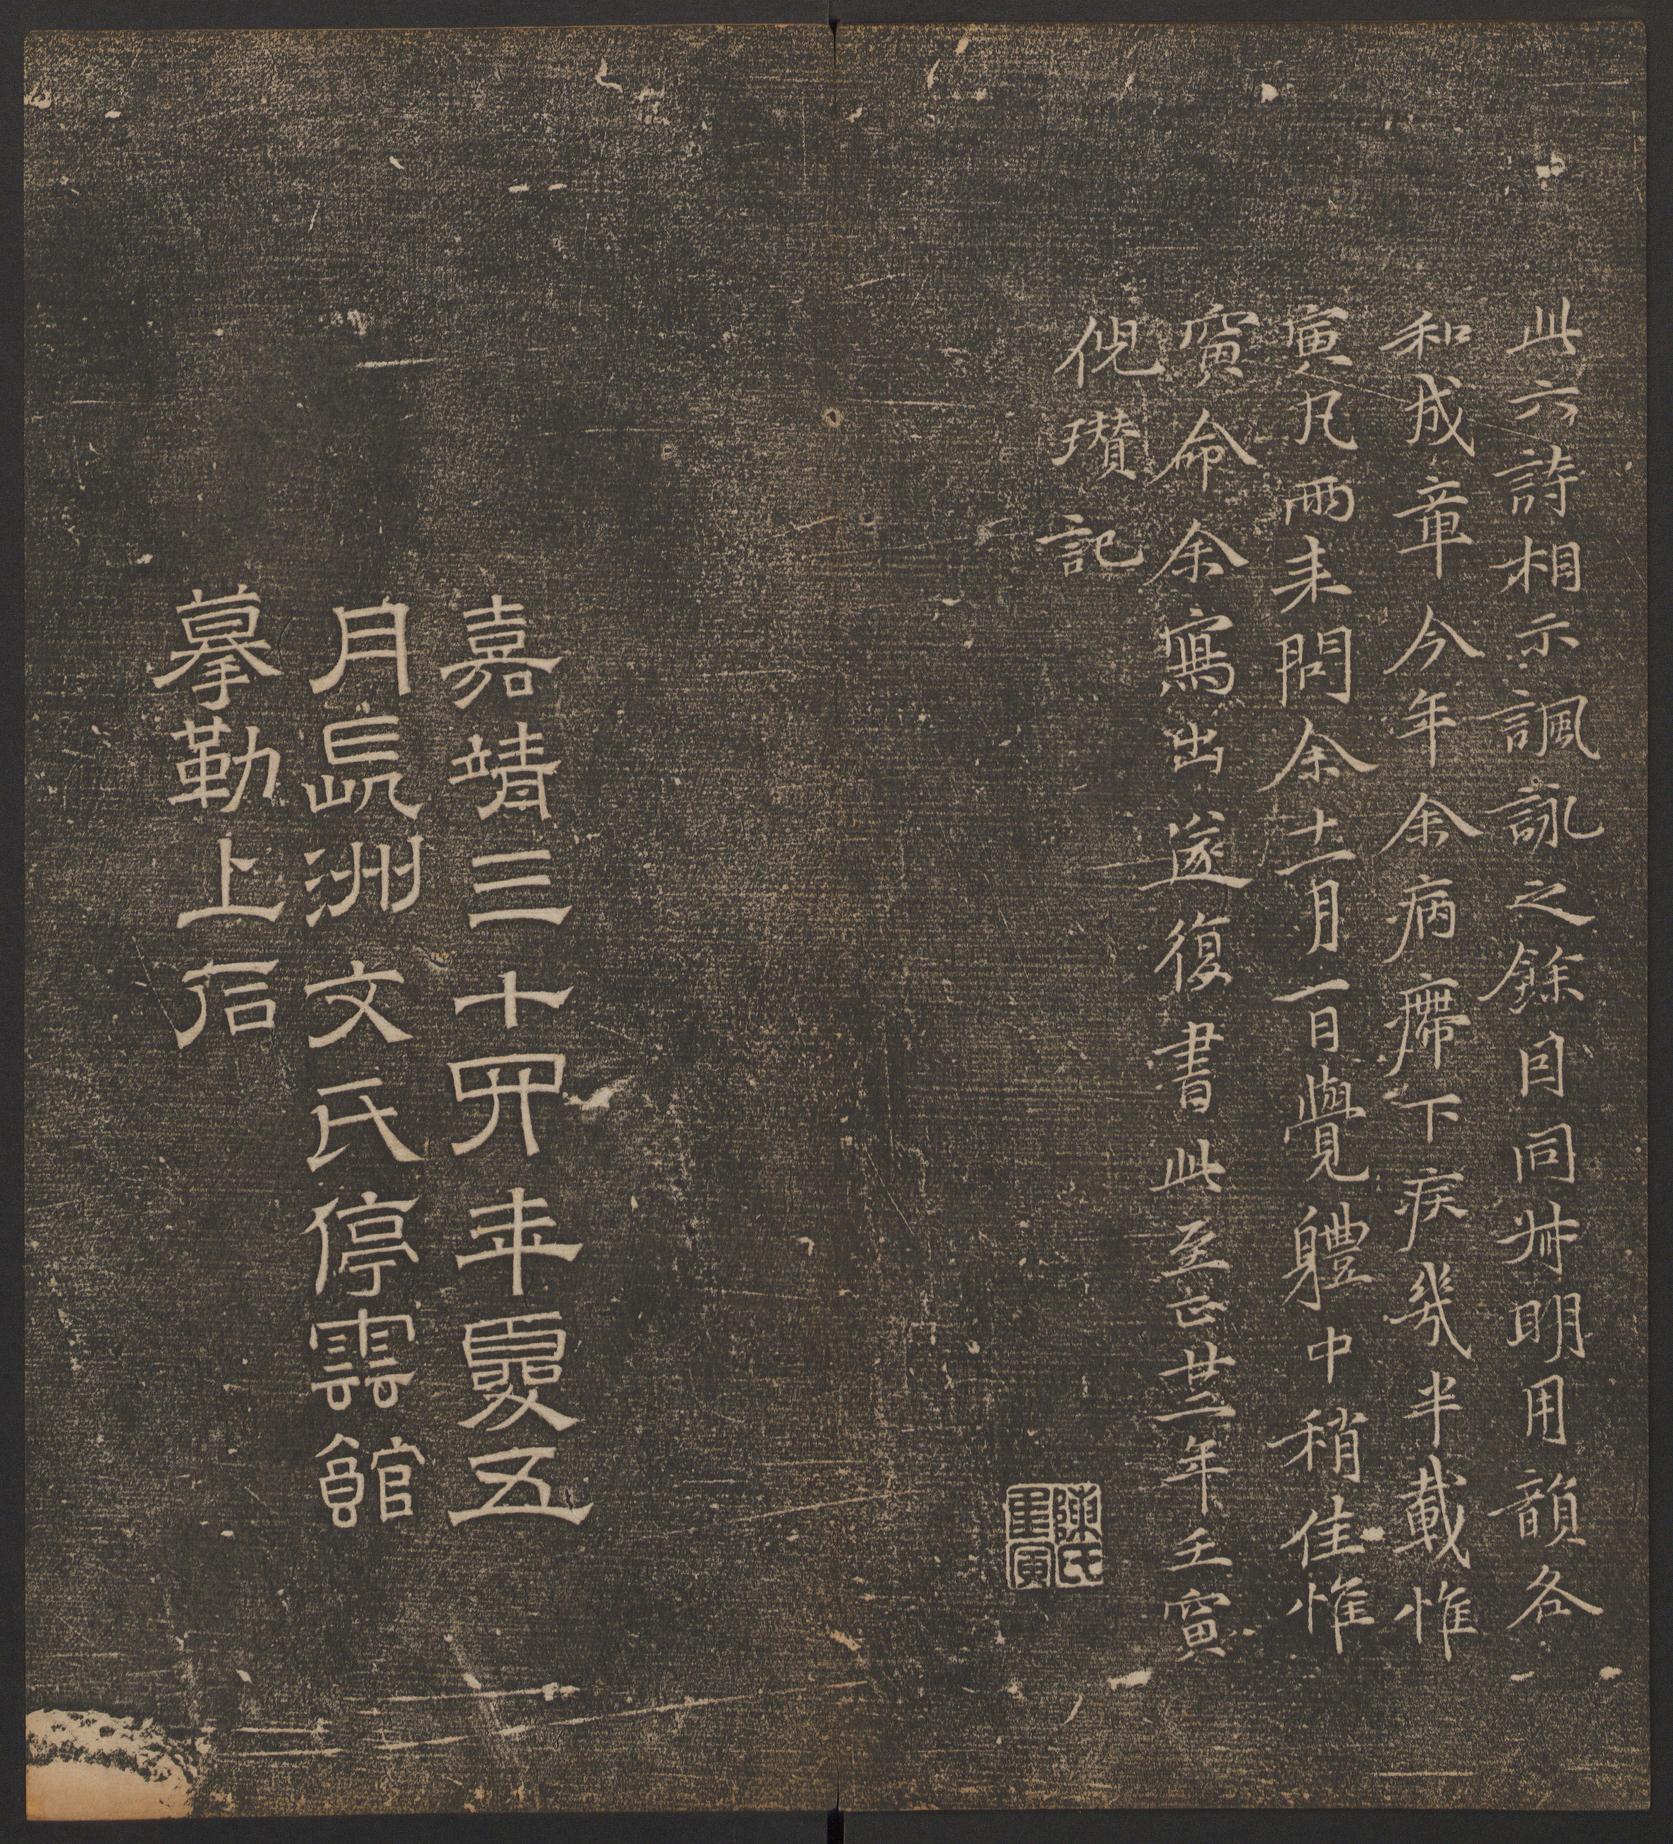 此六詩相示諷詠之餘因同叔明用韻各
和成章今年余病滯下疾幾半載惟
寅凡兩来問余十一月一日覺軆中稍佳惟
寅命余寫出遂復書此至正廿二年壬寅
倪瓚記
陳氏
惟寅
嘉靖三十四年夏五
月長洲文氏停雲館
摹勒上石